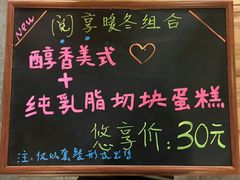 New
阅享暖冬组合
醇香美式
+
纯乳脂切块蛋糕
悠享价:30元
注:仅以套餐形式出售